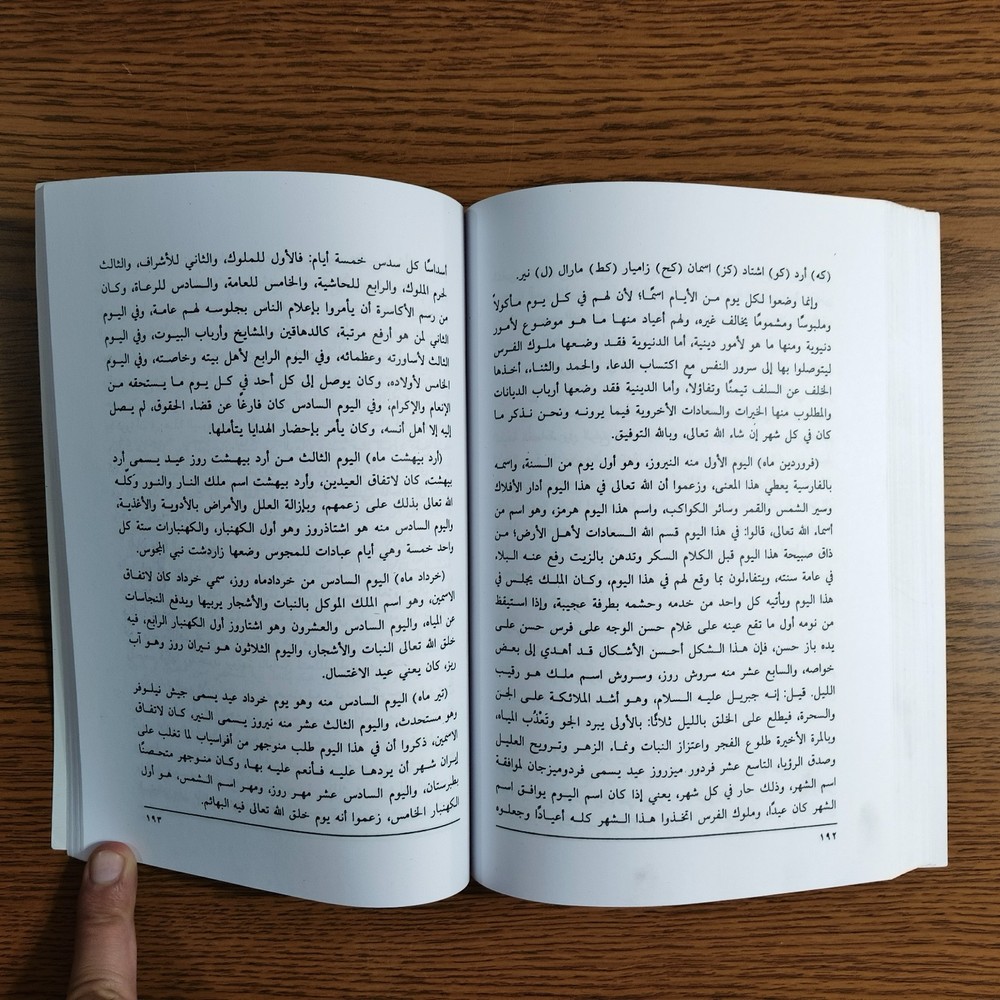 (كه) أرد (كو) اشتاد (كز) اسمان (كح) زاميار (كط) مارال (ل) نير.
وإنما وضعوا لكل يوم من الأيام اسمًا؛ لأن لهم في كل يوم مأكولاً
وملبوسًا ومشمومًا يخالف غيره، ولهم أعياد منها ما هو موضوع لأمور
دنيوية ومنها ما هو لأمور دينية، أما الدنيوية فقد وضعها ملوك الفرس
ليتوصلوا بها إلى سرور النفس مع اكتساب الدعاء، والحمد والثناء، أخذها
الخلف عن السلف تيمنًا وتفاؤلاً، وأما الدينية فقد وضعها أرباب الديانات
والمطلوب منها الخيرات والسعادات الأخروية فيما يرونه ونحن نذكر ما
كان في كل شهر إن شاء الله تعالى، وبالله التوفيق.
(فروردين ماه) اليوم الأول منه النيروز، وهو أول يوم من السنة، واسمه
بالفارسية يعطي هذا المعنى، وزعموا أن الله تعالى في هذا اليوم أدار الأفلاك
وسير الشمس والقمر وسائر الكواكب، واسم هذا اليوم هرمز، وهو اسم من
أسماء الله تعالى، قالوا: في هذا اليوم قسم الله السعادات لأهل الأرض؛ من
ذاق صبيحة هذا اليوم قبل الكلام السكر وتدهن بالزيت رفع عنه البلاء
في عامة سنته، ويتفاءلون بما وقع لهم في هذا اليوم، وكان الملك يجلس في
هذا اليوم ويأتيه كل واحد من خدمه وحشمه بطرفة عجيبة، وإذا استيقظ
من نومه أول ما تقع عينه على غلام حسن الوجه على فرس حسن على
يده باز حسن، فإن هذا الشكل أحسن الأشكال قد أهدي إلى بعض
خواصه، والسابع عشر منه سروش روز، وسروش اسم ملك هو رقيب
الليل. قيل: إنه جبريل عليه السلام، وهو أشد الملائكة على الجن
والسحرة، فيطلع على الخلق بالليل ثلاثًا: بالأولى يبرد الجو وتَعْذُب المياه،
وبالمرة الأخيرة طلوع الفجر واعتزاز النبات ونماء الزهر وترويح العليل
وصدق الرؤيا، التاسع عشر فردور ميزروز عيد يسمى فردوميزجان لموافقة
اسم الشهر، وذلك حار في كل شهر، يعني إذا كان اسم اليوم يوافق اسم
الشهر كان عيدًا، وملوك الفرس اتخذوا هذا الشهر كله أعيادًا وجعلوه
١٩٢
أسداسًا كل سدس خمسة أيام: فالأول للملوك، والثاني للأشراف، والثالث
لحرم الملوك، والرابع للحاشية، والخامس للعامة، والسادس للرعاة، وكان
من رسم الأكاسرة أن يأمروا بإعلام الناس بجلوسه لهم عامة، وفي اليوم
الثاني لمن هو أرفع مرتبة، كالدهاقين والمشايخ وأرباب البيوت، وفي اليوم
الثالث لأساورته وعظمائه، وفي اليوم الرابع لأهل بيته وخاصته، وفي اليوم
الخامس لأولاده، وكان يوصل إلى كل أحد في كل يوم ما يستحقه من
الإنعام والإكرام، وفي اليوم السادس كان فارغًا عن قضاء الحقوق، لم يصل
إليه إلا أهل أنسه، وكان يأمر بإحضار الهدايا يتأملها.
(أرد بيهشت ماه) اليوم الثالث من أرد بيهشت روز عيد يسمى أرد
بيهشت، كان لاتفاق العيدين، وأرد بيهشت اسم ملك النار والنور وكله
الله تعالى بذلك على زعمهم، وبإزالة العلل والأمراض بالأدوية والأغذية،
واليوم السادس منه هو اشتاذروز وهو أول الكهنبار، والكهنبارات ستة كل
واحد خمسة وهي أيام عبادات للمجوس وضعها زاردشت نبي المجوس.
(خرداد ماه) اليوم السادس من خردادماه روز، سمي خرداد كان لاتفاق
الاسمين، وهو اسم الملك الموكل بالنبات والأشجار يربيها ويدفع النجاسات
عن المياه، واليوم السادس والعشرون وهو اشتاروز أول الكهنبار الرابع، فيه
خلق الله تعالى النبات والأشجار، واليوم الثلاثون هو نيران روز وهو آب
ريز، كان يعني عيد الاغتسال.
(تير ماه) اليوم السادس منه وهو يوم خرداد عيد يسمى جيش نيلوفر
وهو مستحدث، واليوم الثالث عشر منه نيروز يسمى النير، كان لاتفاق
الاسمين، ذكروا أن في هذا اليوم طلب منوجهر من أفراسياب لما تغلب على
إيران شهر أن يردها عليه فأنعم عليه بها، وكان منوجهر متحصنًا
بطبرستان، واليوم السادس عشر مهر روز، ومهر اسم الشمس، هو أول
الكهنبار الخامس، زعموا أنه يوم خلق الله تعالى فيه البهائم.
١٩٣